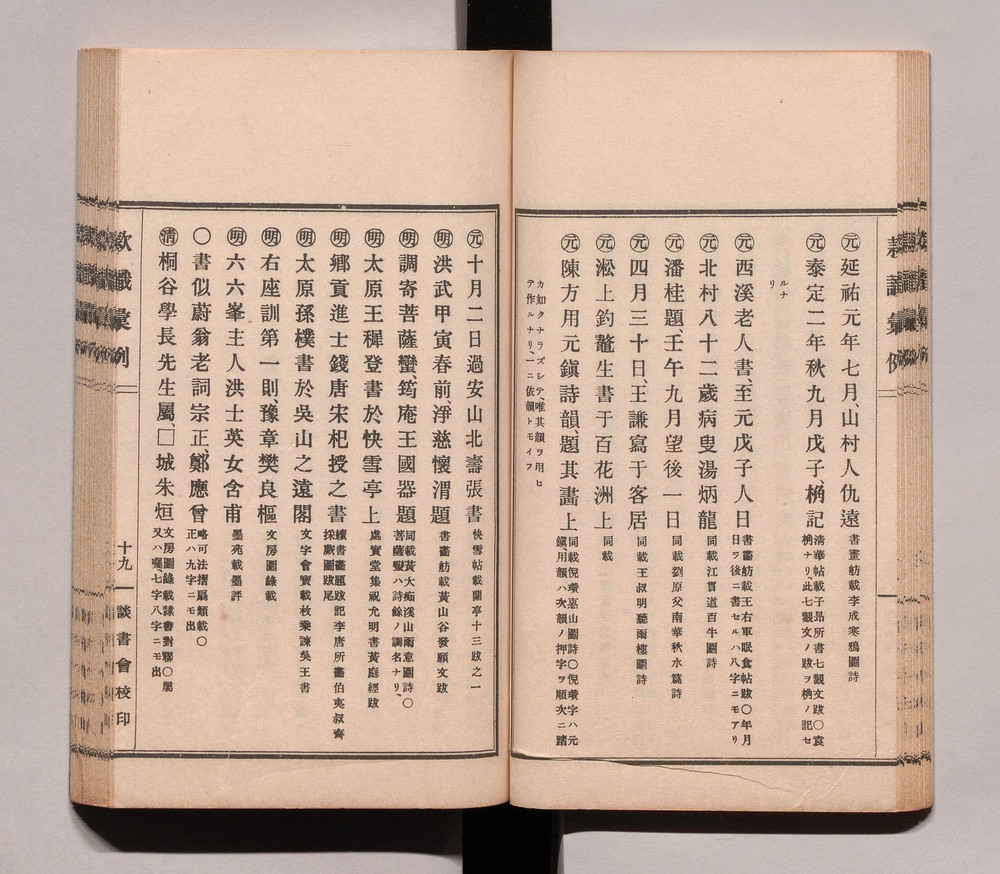 ㊊延祐元年七月、山村人仇遠 書畫舫載李成寒鴉圖詩
㊊泰定二年秋九月戊子、桷記 清華帖載子昂所書七觀文跋〇袁
桷ナリ、此七觀文ノ跋ヲ桷ノ記セ
ルナ
リ
㊊西溪老人書、至元戊子人日 書畫舫載王右軍眠食帖跋〇年月
日ヲ後ニ書セルハ八字ニモアリ
㊊北村八十二歲病叟湯炳龍 同載江貫道百牛圖詩
㊊潘桂題、壬午九月望後一日 同載劉原父南華秋水篇詩
㊊四月三十日、王謙寫于客居 同載王叔明聽雨樓圖詩
㊊淞上釣鼇生書于百花洲上 同載
㊊陳方用元鎭詩韻、題其畫上 同載倪瓚惠山圖詩〇倪瓚字ハ元
鎭用韻ハ次韻ノ押字ヲ順次ニ踏
カ如クナラズシテ、唯其韻ヲ用ヒ
テ作ルナリ、一ニ依韻トモイフ
款識彙例
十九
談書會校印
㊊十月二日過安山北壽張書 快雪帖載蘭亭十三跋之一
㊐洪武甲寅春前、淨慈懷渭題 書畫舫載黃山谷發願文跋
調寄菩薩蠻、筠庵王國器題 同載黃大痴溪山雨意圖詩〇
菩薩蠻ハ詩餘ノ調名ナリ、
太原王穉登書於快雪亭上 處實堂集祝允明書黃庭經跋
鄉貢進士錢唐宋杞授之書 續書畫題跋記李唐所畫伯夷叔齊
採薇圖跋尾
太原孫樸書於吳山之遠閣 文字會寶載枚乘諫吳王書
右座訓第一則、豫章樊良樞 文房圖錄載
六六峯主人洪士英女含甫 墨苑載墨評
〇書似蔚翁老詞宗正、鄭應曾 略可法摺扇類載〇
正ハ九字ニモ出
淸桐谷學長先生屬、□城朱烜 文房圖錄載隸書對聯〇屬
又ハ囑、七字八字ニモ出